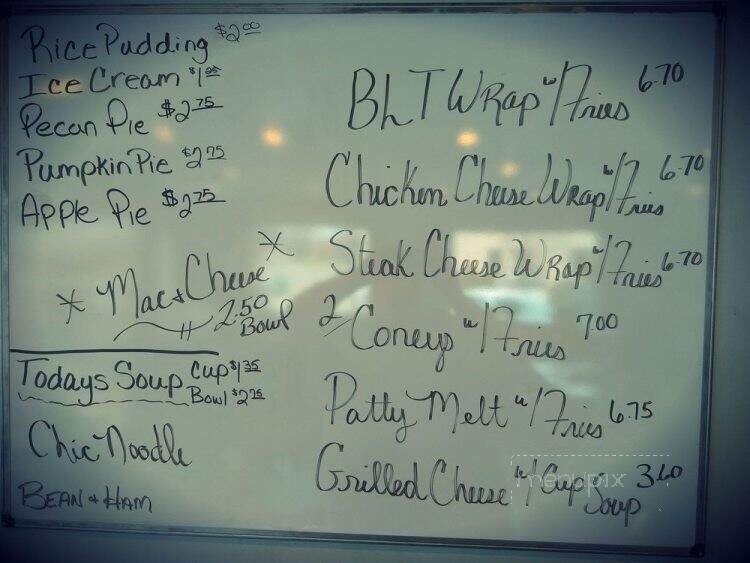 Rice Pudding $2.00
Ice Cream $1.00
Pecan Pie $2.75
Pumpkin Pie $2.75
Apple Pie $2.75
* Mac & Cheese *
2.50
Bowl
Todays Soup Cup $1.35
Bowl $2.25
Chic Noodle
BEAN & HAM
BLT Wrap w/Fries 6.70
Chicken Cheese Wrap w/Fries 6.70
Steak Cheese Wrap w/Fries 6.70
2/Coneys w/Fries 7.00
Patty Melt w/Fries 6.75
Grilled Cheese w/Cup Soup 3.60
menupix